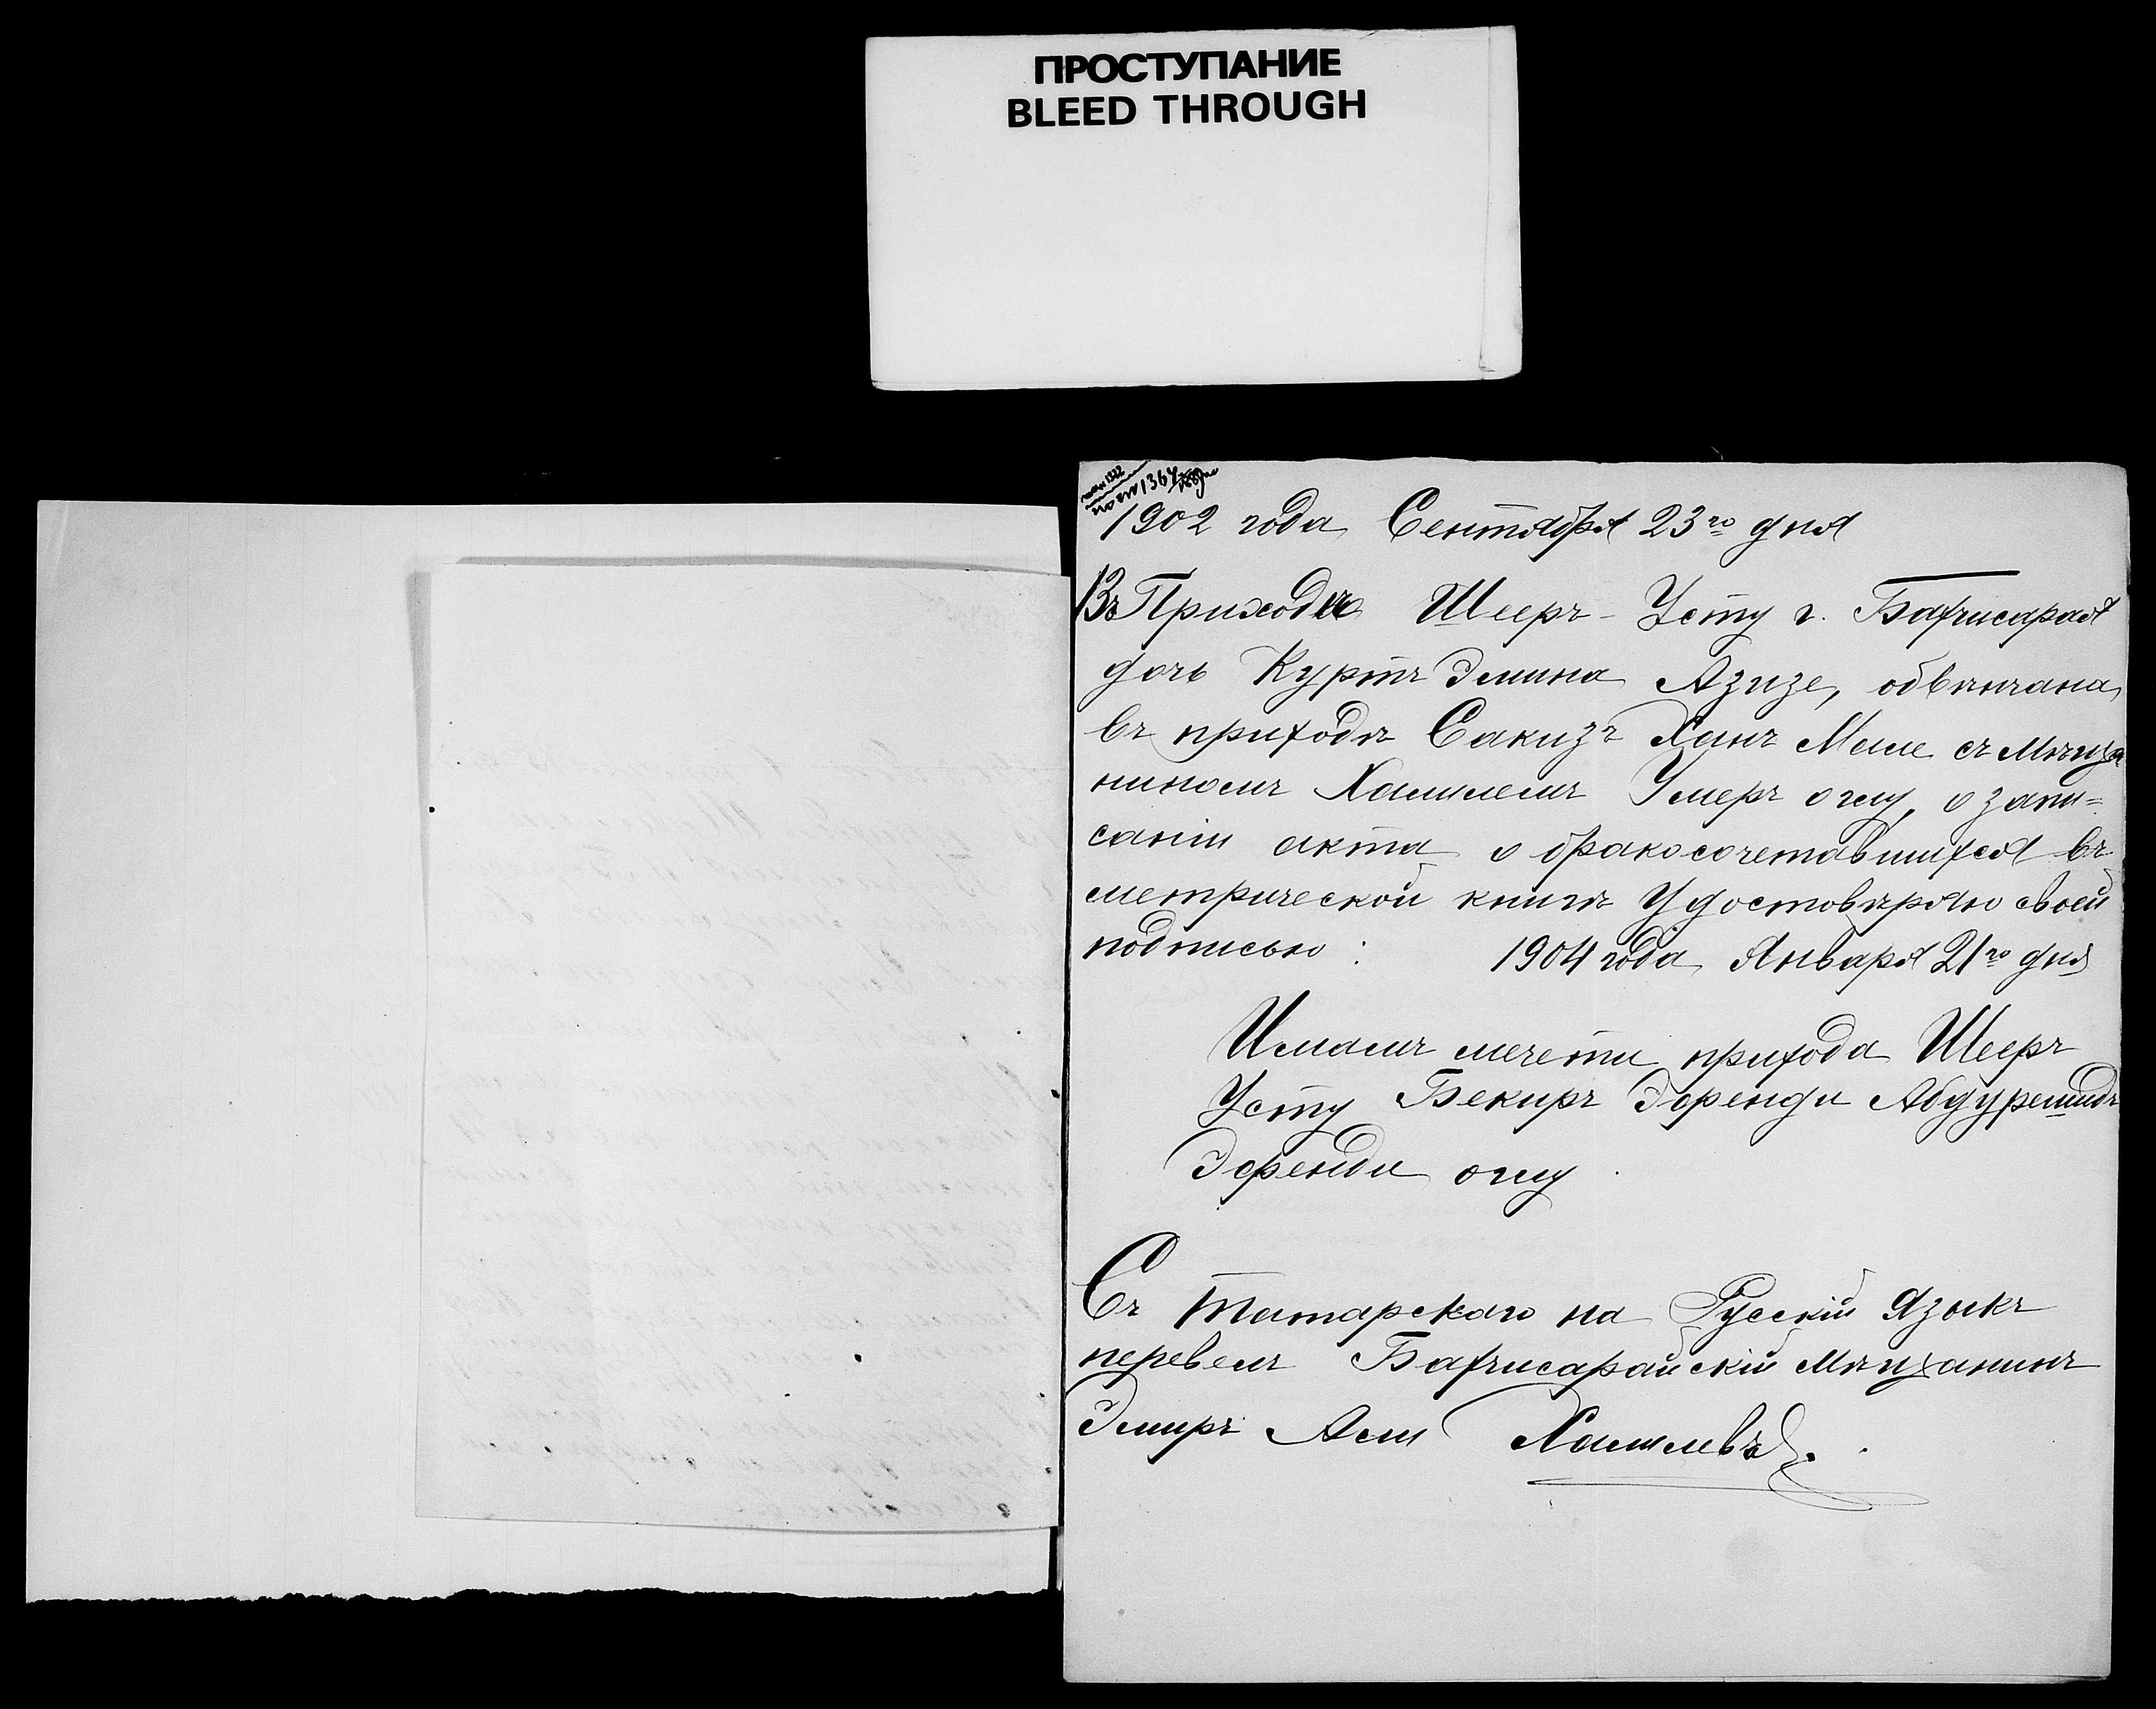 ПРОСТУПАНИЕ
BLEED THROUGH
1902 года Сентября 23го дня
Въ Приходѣ Шееръ-Усту г. Бахчисарая
дочь Куртъ Эмина Азизе, обвѣнчана
въ приходѣ Сакизъ Ханъ Меше съ мѣща
ниномъ Халилемъ Умеръ оглу, о запи=
саніи акта о бракосочетавшихся въ
метрической книгѣ Удостовѣряю своей
подписью: 1904 года Января 21го дня
Имамъ мечети прихода Шееръ
Усту Бекиръ Эфенди Абдурешидъ
Эфенди оглу
Съ Татарскаго на Русскій Языкъ
перевелъ Бахчисарайскій Мѣщанинъ
Эмиръ Али